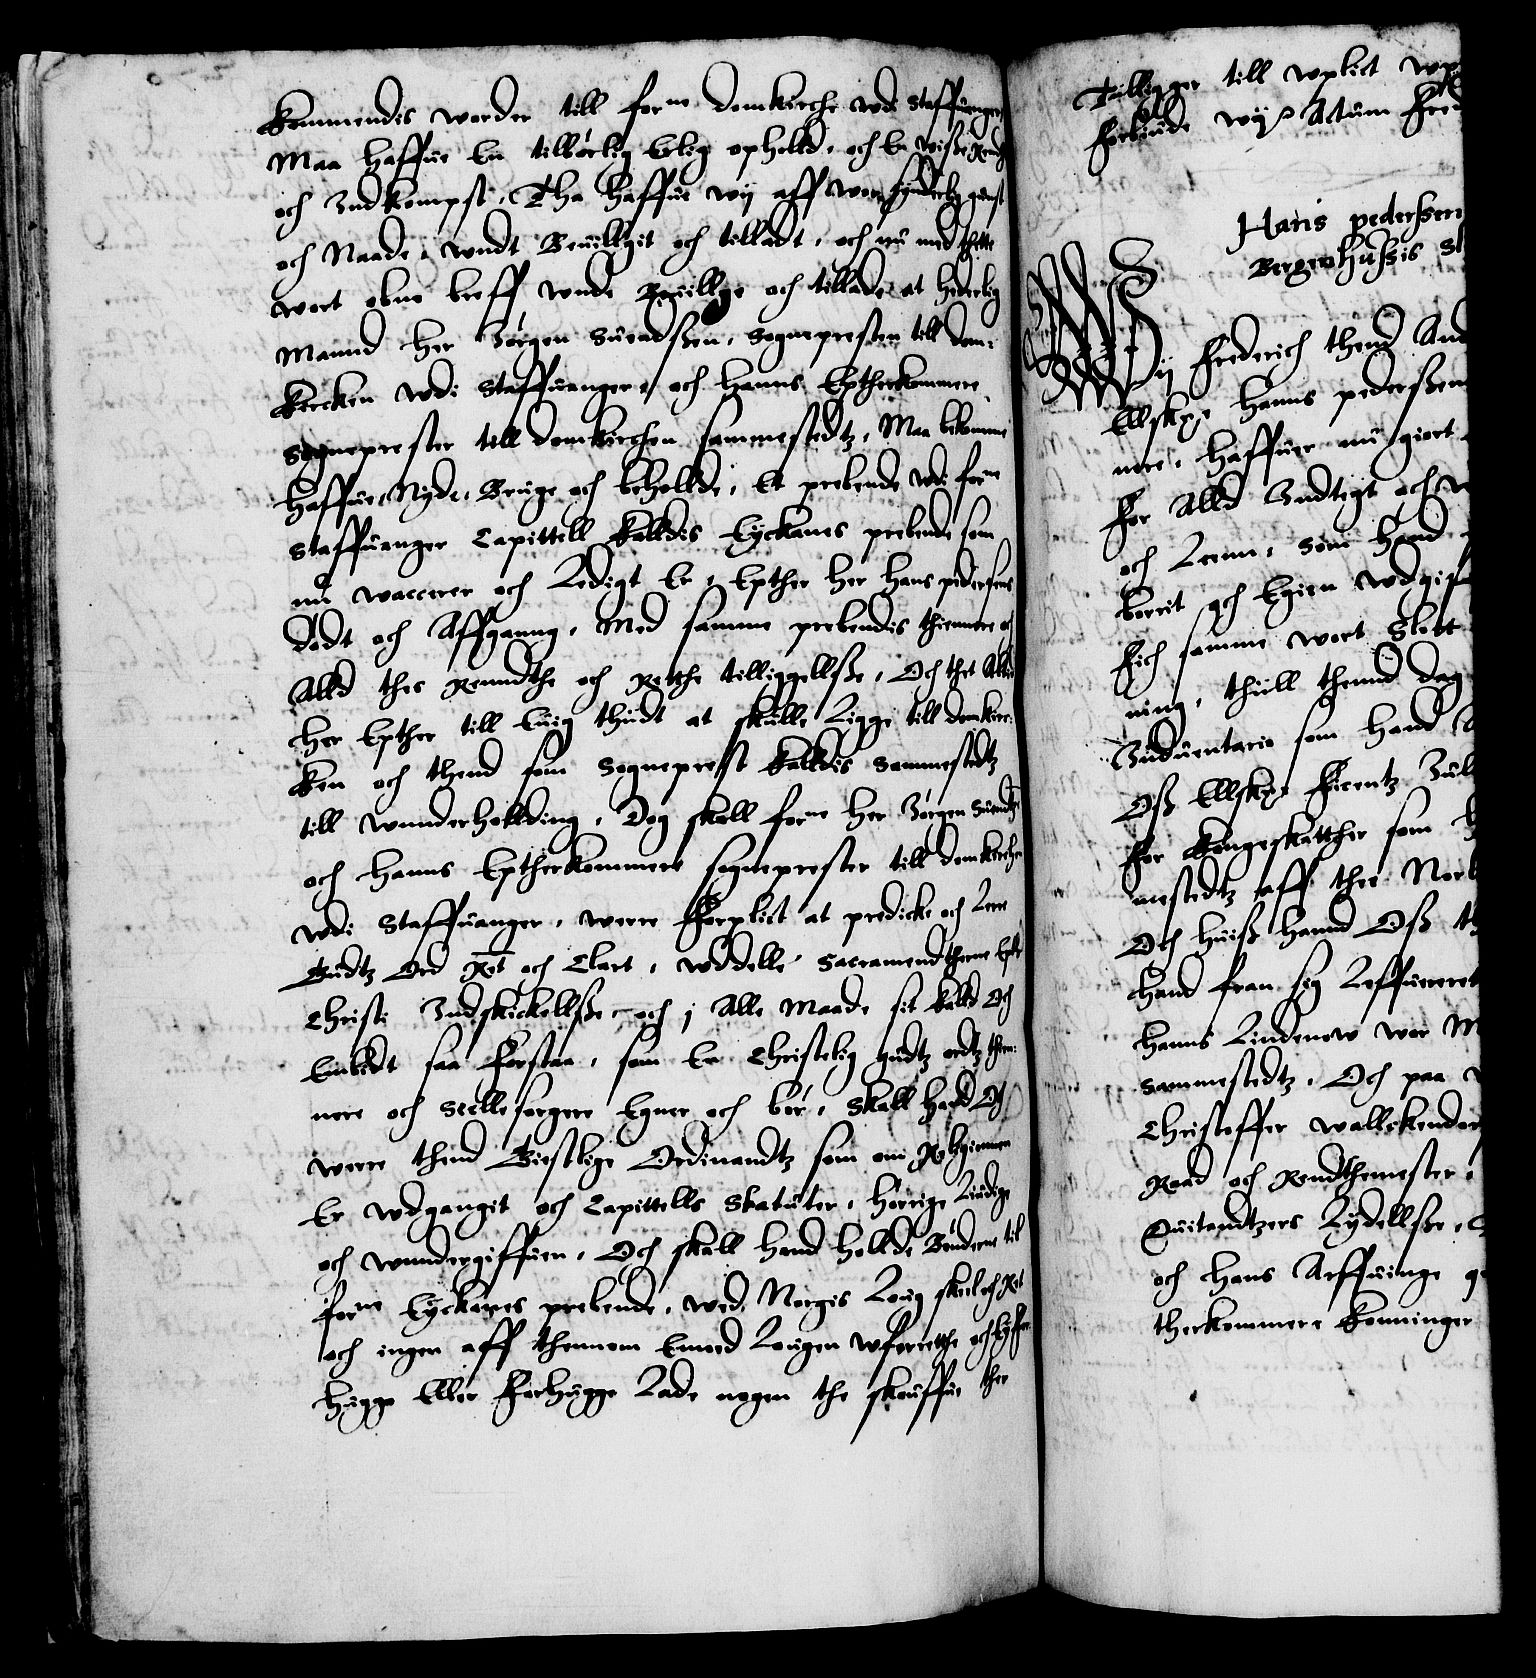 Kommendis worder till forne domkirche wdi Staffuanger
Maa haffue En tilbørlig Erlig ophelld, och En wisse Renthe
och Indkompst, Tha haffue wy aff wor synderlig gunst
och Naade, wndt Beuillgit och tilladt, och nu med thette
wort obne breff wnde Beuillge och tillade at hederlig
Mannd her Jørgen Suendssen, Sogneprestenn till dom-
kircken wdi Staffuanger, och hanns Eptherkommere
Sogneprester till domkirchen sammestedtz, Maa bekomme
haffue, Nyde, Bruge och beholde, Et prebende wdi forne
Staffuanger Capittell kalldis Eyckanes prebende som
nu waccerer och Ledigt Er, Epther her Hans pedersens
dødt och Affganng, Med samme prebendis thiennere och
Alld thes Renndthe och Retthe tilliggellsse, Och thet Altid
her Epther till Euig thiidt at skulle Ligge till domkirc-
ken och thend som Sogneprest kalldis Sammestedtz
till wnnderholding, Dog skall forne her Jørgen Suendssen
och hanns Eptherkommere sogneprester till domkirchen
wdi Staffuanger, were forplict at predicke och Lere
Gudtz Ord Ret och Clart, wddelle Sacramendtherne Epther
Christi Indskickellsse och j Alle Maade sit kalld Och
Embedt saa forstaa, som En Christelig gudtz ordtz thien-
nere och Siellesørgere Egner och bør, Skall hand Och
were thend Giestlige Ordinandtz som om Religionen
Er wdgangit och Capittells Statuter, hørrige Liudige
och wnndergiffuen, Och skall hand hollde Bønderne til
forne Eyckanes prebende, wed Norgis Loug skiel och Ret
och ingen aff thennom Emod Lougen wforrette och ey for-
hugge Eller forhugge Lade nogen the skouffue ther
Tilligger till wplict
forbiude wij Actum
Hans pederssen
Bergenhussis
Wij Frederich thend
Ellskge Hanns pederssenn
nere, haffuer nu giort
for Alld Indtegt och
och Leenn, som hand
borrit och Egien wdgift
fich samme wort Slott
ning, thiill thennd dag
Induentario som hand
Oss Ellskge
for kongeskatther som
mestedtz aff thee
Och huiss hannd Oss
hand fran sig Leffuereret
Hanns Lindenow wor
Sammestedtz, Och paa
Christoffer wallckendorff
Raad och Rendthemester,
Quitandtzers Lydellsse,
och hans Arffuinge
therkommere konninger